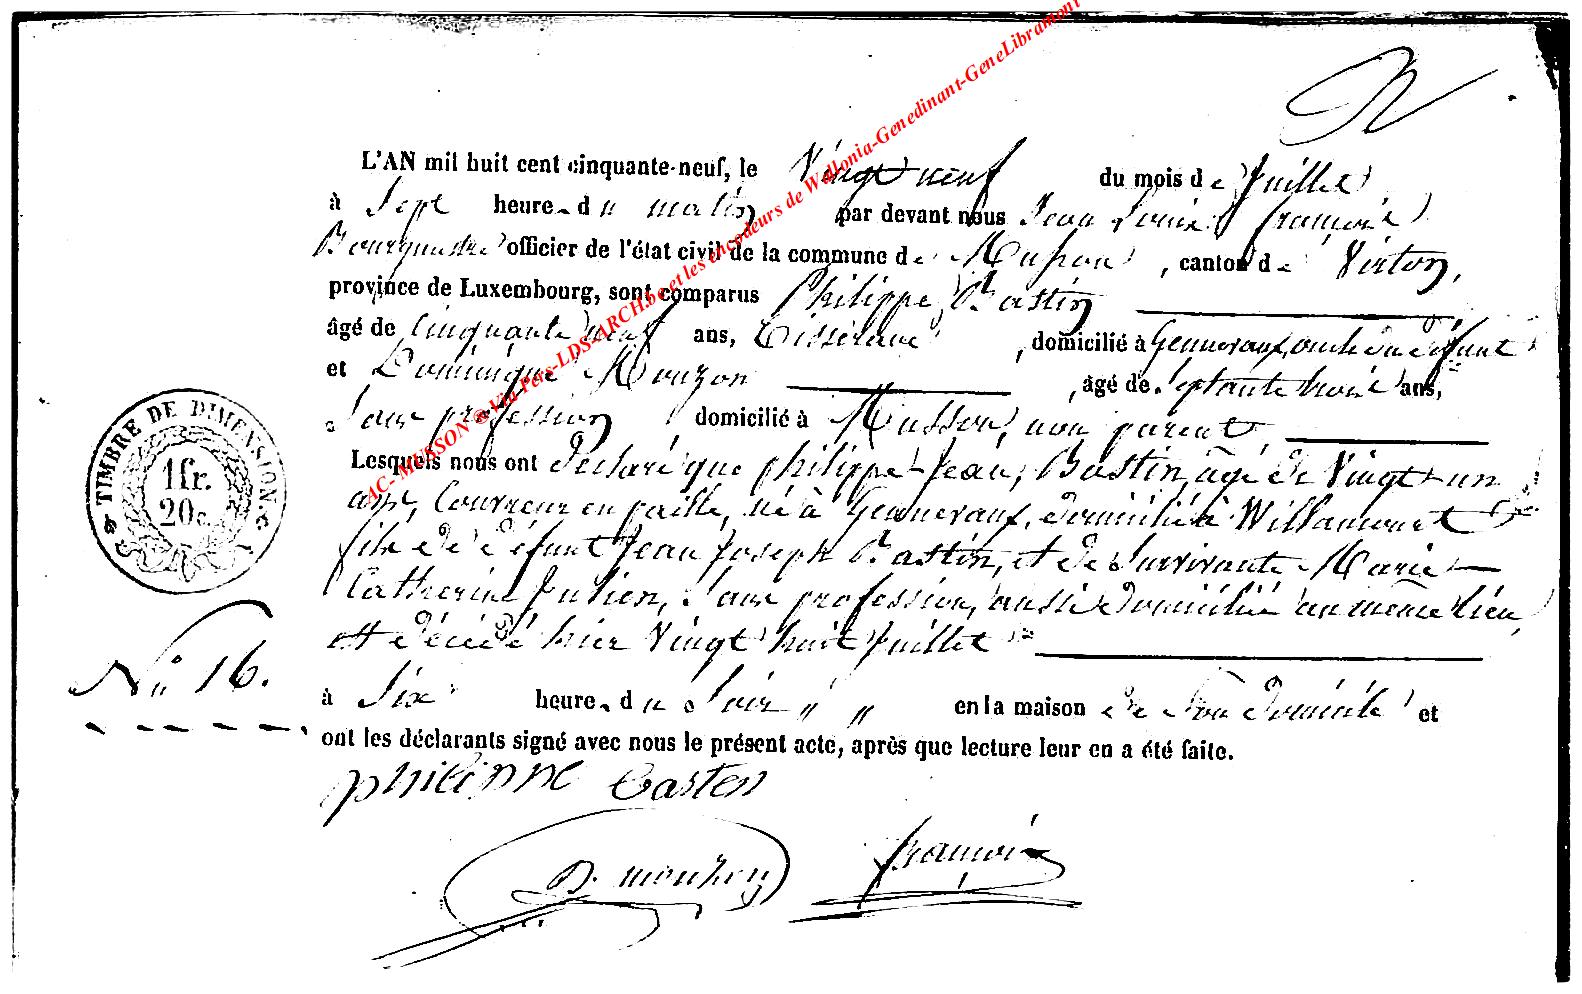 L'AN mil huit cent cinquante-neuf, le Vingt neuf du mois de Juillet
à Sept heures du matin par devant nous Jean Louis François
Bourgmestre officier de l'état civil de la commune de Musson, canton de Virton,
province de Luxembourg, sont comparus Philippe Bastin
âgé de Cinquante neuf ans, Tisserand, domicilié à Gennevaux, oncle du défunt
et Dominique Mouzon, âgé de septante trois ans,
Sans profession domicilié à Musson, non parent,
Lesquels nous ont déclaré que philippe-Jean, Bastin, âgé de Vingt un
ans, Couvreur en paille, né à Gennevaux, domicilié à Willancourt
fils de défunt Jean Joseph Bastin, et de Survivante Marie
Catherine Julien, Sans profession, aussi domiciliée au même lieu,
est décédé hier Vingt huit Juillet
à Six heures du Soir " " en la maison de Son domicile et
ont les déclarants signé avec nous le présent acte, après que lecture leur en a été faite.
philippe Basten
D. Mouzon François
TIMBRE DE DIMENSION.
1fr.
20c.
N° 16.
AC- MUSSON ® Via Pers-LDS-ARCH.be et les encodeurs de Wallonia-Genedinant-GeneLibramont